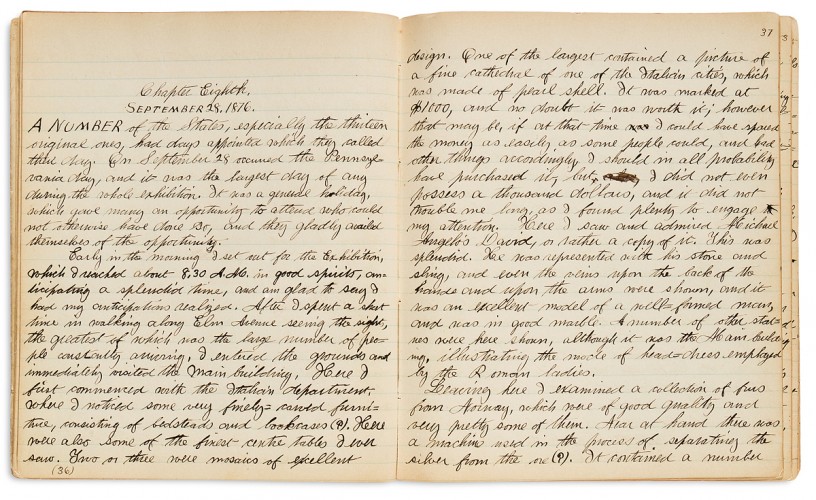 Chapter Eighth.
SEPTEMBER 28, 1876.
A NUMBER of the States, especially the thirteen
original ones, had days appointed which they called
their day. On September 28 occurred the Pennsyl-
vania day, and it was the largest day of any
during the whole exhibition. It was a general holiday,
which gave many an opportunity to attend who could
not otherwise have done so, and they gladly availed
themselves of the opportunity.
Early in the morning I set out for the Exhibition,
which I reached about 8,30 A.M. in good spirits, an-
ticipating a splendid time, and am glad to say I
had my anticipations realized. After I spent a short
time in walking along Elm Avenue seeing the sights,
the greatest of which was the large number of peo-
ple constantly arriving, I entered the grounds and
immediately visited the Main building. Here I
first commenced with the Italian department,
where I noticed some very finely-carved furni-
ture, consisting of bedsteads and bookcases (?). Here
were also some of the finest centre tables I ever
saw. Two or three were mosaics of excellent
(36)
37
design. One of the largest contained a picture of
a fine cathedral of one of the Italian cities, which
was made of pearl shell. It was marked at
$1000, and no doubt it was worth it; however
that may be, if at that time I could have spared
the money as easily as some people could, and had
other things accordingly, I should in all probability
have purchased it, but I did not even
possess a thousand dollars, and it did not
trouble me long, as I found plenty to engage
my attention. Here I saw and admired Michael
Angelo's David, or rather a copy of it. This was
splendid. He was represented with his stone and
sling, and even the veins upon the back of the
hands and upon the arms were shown, and it
was an excellent model of a well-formed man,
and was in good marble. A number of other stat-
ues were here shown, although it was the Main build-
ing, illustrating the mode of head-dress employed
by the Roman ladies.
Leaving here I examined a collection of furs
from Norway, which were of good quality and
very pretty some of them. Near at hand there was
a machine used in the process of separating the
silver from the ore (?). It contained a number